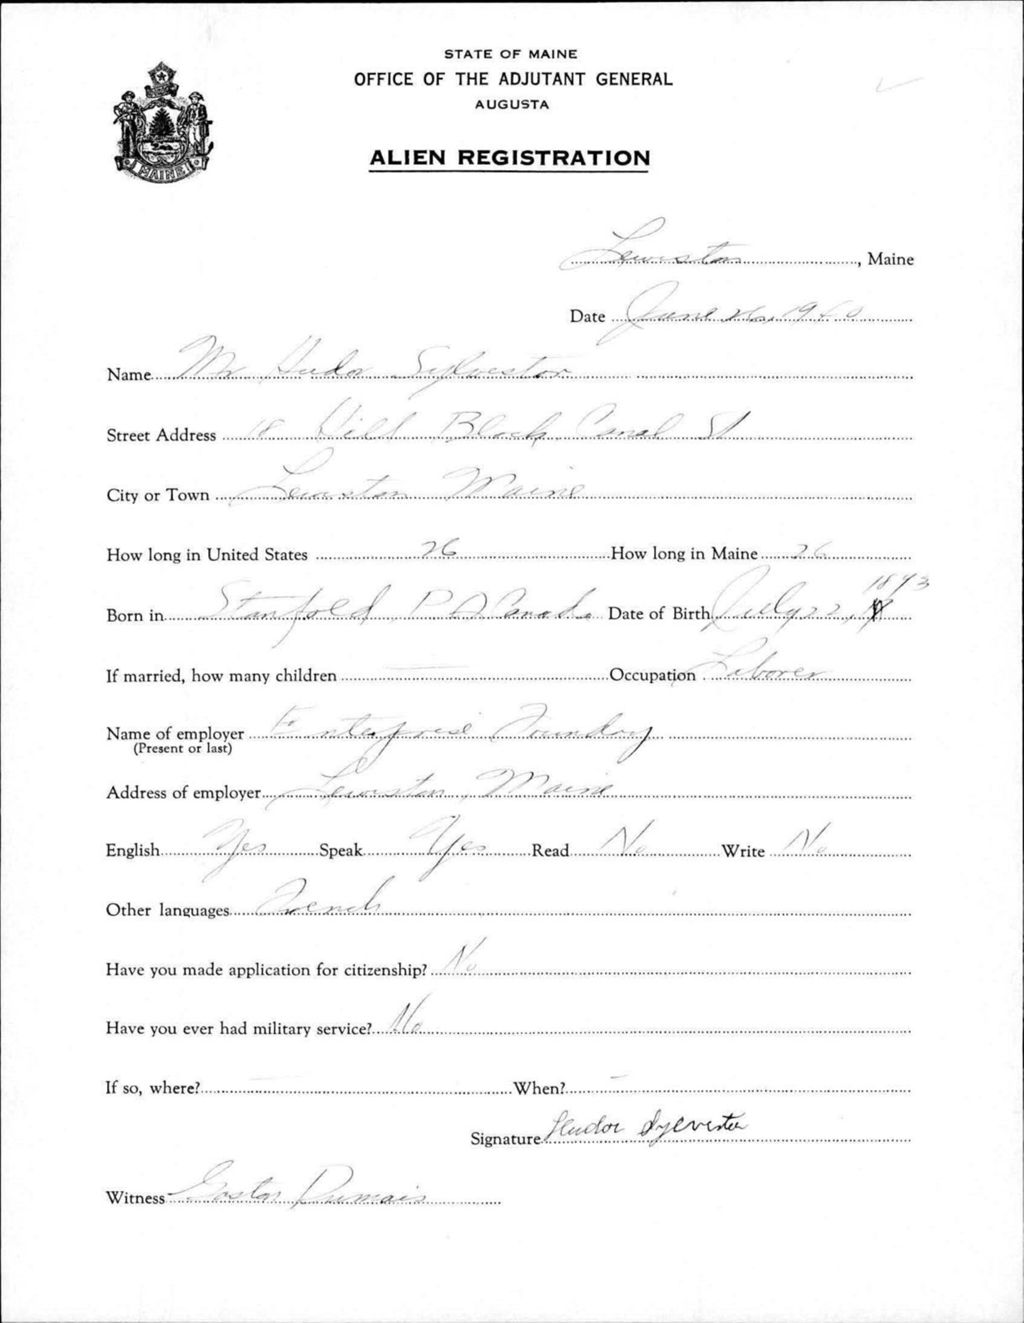 STATE OF MAINE
OFFICE OF THE ADJUTANT GENERAL
AUGUSTA
MAINE
ALIEN REGISTRATION
Lewiston, Maine
Date June 26, 1940
Name Mr Sylvester
Street Address 18 Hill Block Canal St
City or Town Lewiston Maine
How long in United States 26 How long in Maine 26
Born in Stanfold P Q Canada Date of Birth July 22, 1893
If married, how many children — Occupation Laborer
Name of employer Enterprise Foundry
(Present or last)
Address of employer Lewiston, Maine
English Yes Speak Yes Read No Write No
Other languages French
Have you made application for citizenship? No
Have you ever had military service? No
If so, where? — When? —
Signature
Witness Gaston Dumais